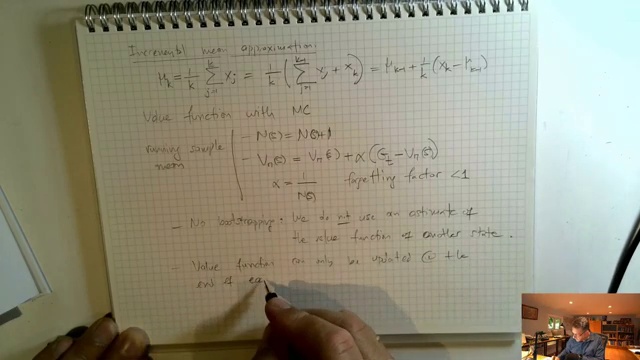 Incremental mean approximation:
μ_k = 1/k ∑_{j=1}^{k} x_j = 1/k ( ∑_{j=1}^{k-1} x_j + x_k ) = μ_{k-1} + 1/k (x_k - μ_{k-1})
Value function with MC
running sample mean
- N(s) = N(s)+1
- V_π(s) = V_π(s) + α (G_t - V_π(s))
α = 1/N(s) forgetting factor < 1
- No bootstrapping: We do not use an estimate of
the value function of another state.
- Value function can only be updated @ the
end of ea